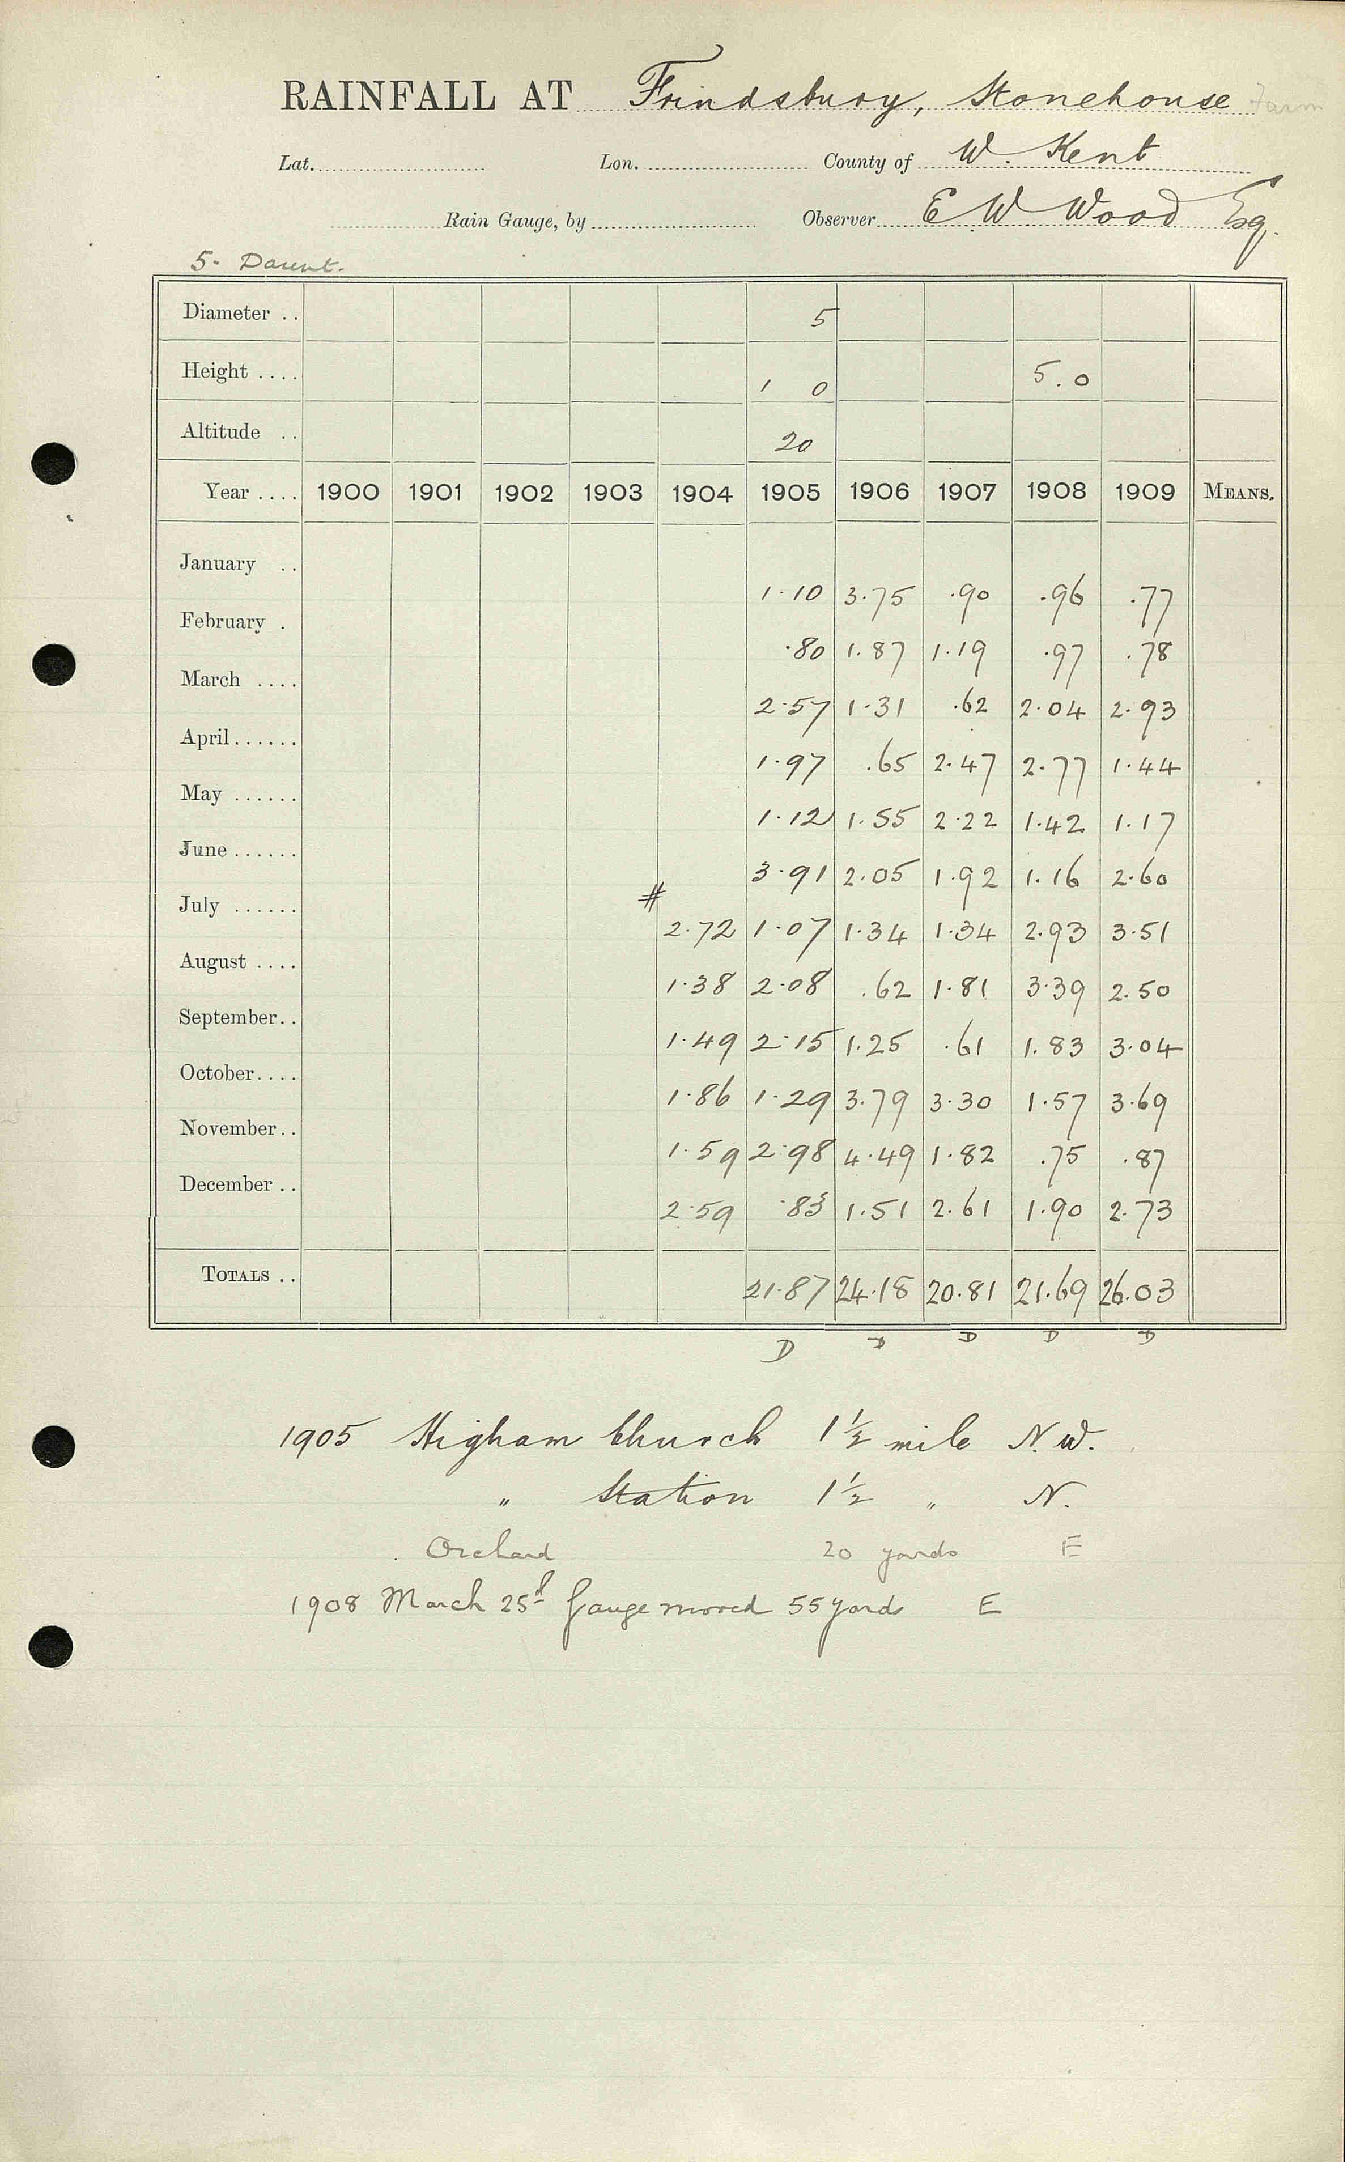 RAINFALL AT Frindsbury, Stonehouse Farm
Lat. Lon. County of W. Kent
Rain Gauge, by Observer E W Wood Esq.
5. Darent.
Diameter .. 5
Height .... 1 0 5.0
Altitude .. 20
Year .... 1900 1901 1902 1903 1904 1905 1906 1907 1908 1909 MEANS.
January .. 1.10 3.75 .90 .96 .77
February . .80 1.87 1.19 .97 .78
March .... 2.57 1.31 .62 2.04 2.93
April...... 1.97 .65 2.47 2.77 1.44
May ...... 1.12 1.55 2.22 1.42 1.17
June ...... 3.91 2.05 1.92 1.16 2.60
July ...... # 2.72 1.07 1.34 1.34 2.93 3.51
August .... 1.38 2.08 .62 1.81 3.39 2.50
September.. 1.49 2.15 1.25 .61 1.83 3.04
October.... 1.86 1.29 3.79 3.30 1.57 3.69
November.. 1.59 2.98 4.49 1.82 .75 .87
December .. 2.59 .83 1.51 2.61 1.90 2.73
TOTALS .. 21.87 24.18 20.81 21.69 26.03
D D D D D
1905 Higham Church 1½ mile N.W.
" Station 1½ " N.
Orchard 20 yards E
1908 March 25th Gauge moved 55 yards E